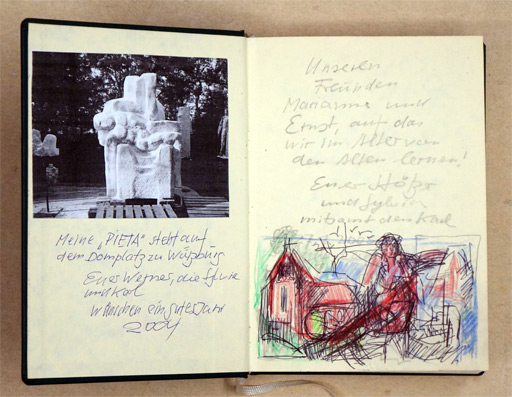 Meine „PIETA" steht auf
dem Domplatz zu Würzburg
Euer Werner, die Sylvie
und Kol
wünschen ein gutes Jahr
2004
Unseren
Freunden
Marianne und
Ernst, auf das
wir im Alter von
den Alten lernen!
Euer
und Sylvia
mitsamt dem Kol